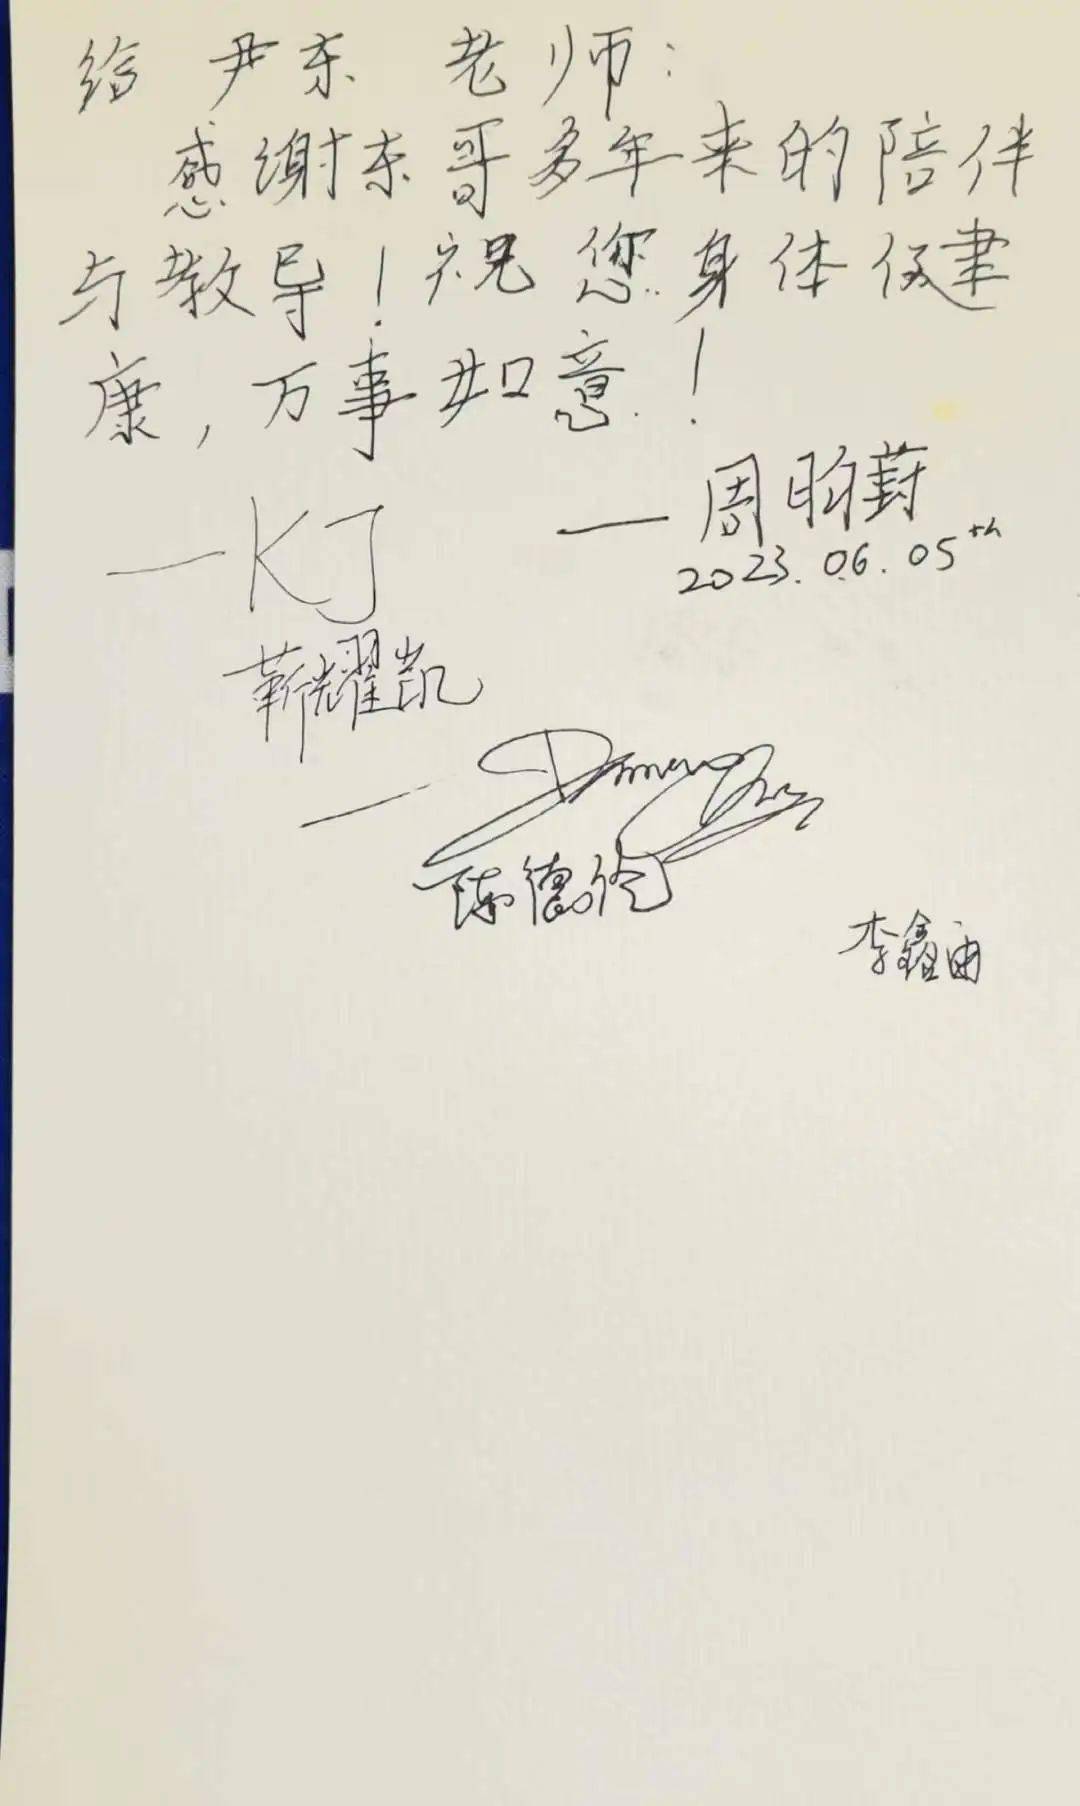 给 尹东 老师：
感谢东哥多年来的陪伴
与教导！祝您身体健
康，万事如意！
—周昀葑
2023.06.05th
—KJ
靳耀凯
陈德伦
李鑫雨